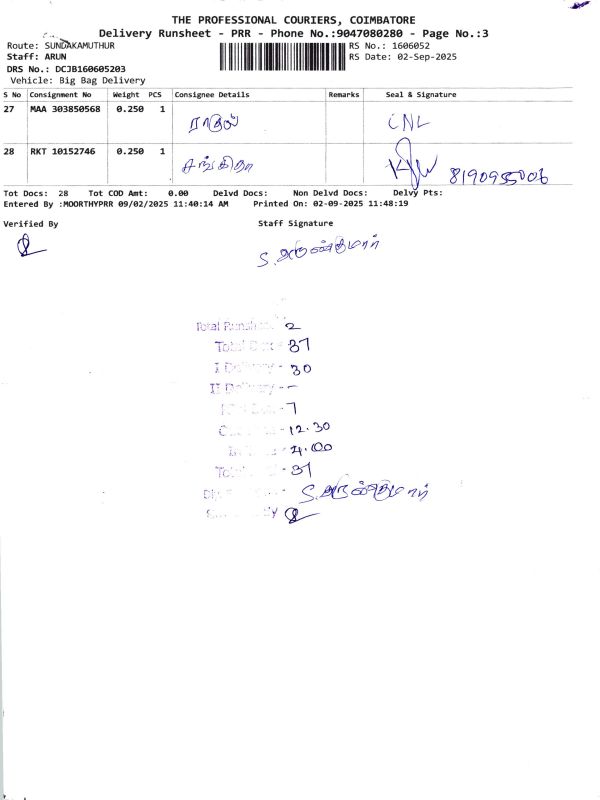 THE PROFESSIONAL COURIERS, COIMBATORE
Delivery Runsheet - PRR - Phone No.:9047080280 - Page No.:3
Route: SUNDAKAMUTHUR
RS No.: 1606052
Staff: ARUN
RS Date: 02-Sep-2025
DRS No.: DCJB160605203
Vehicle: Big Bag Delivery
S No Consignment No Weight PCS Consignee Details Remarks Seal & Signature
27 MAA 303850568 0.250 1 ராகுல் CNL
28 RKT 10152746 0.250 1 சங்கீதா
Tot Docs: 28 Tot COD Amt: 0.00 Delvd Docs: Non Delvd Docs: Delvy Pts:
Entered By :MOORTHYPRR 09/02/2025 11:40:14 AM Printed On: 02-09-2025 11:48:19
Verified By Staff Signature
S. அருண்குமார்
Total 2
Total 37
I Delivery - 30
II Delivery - -
- 7
- 12.30
- 4.00
Total - 37
S. அருண்குமார்
By